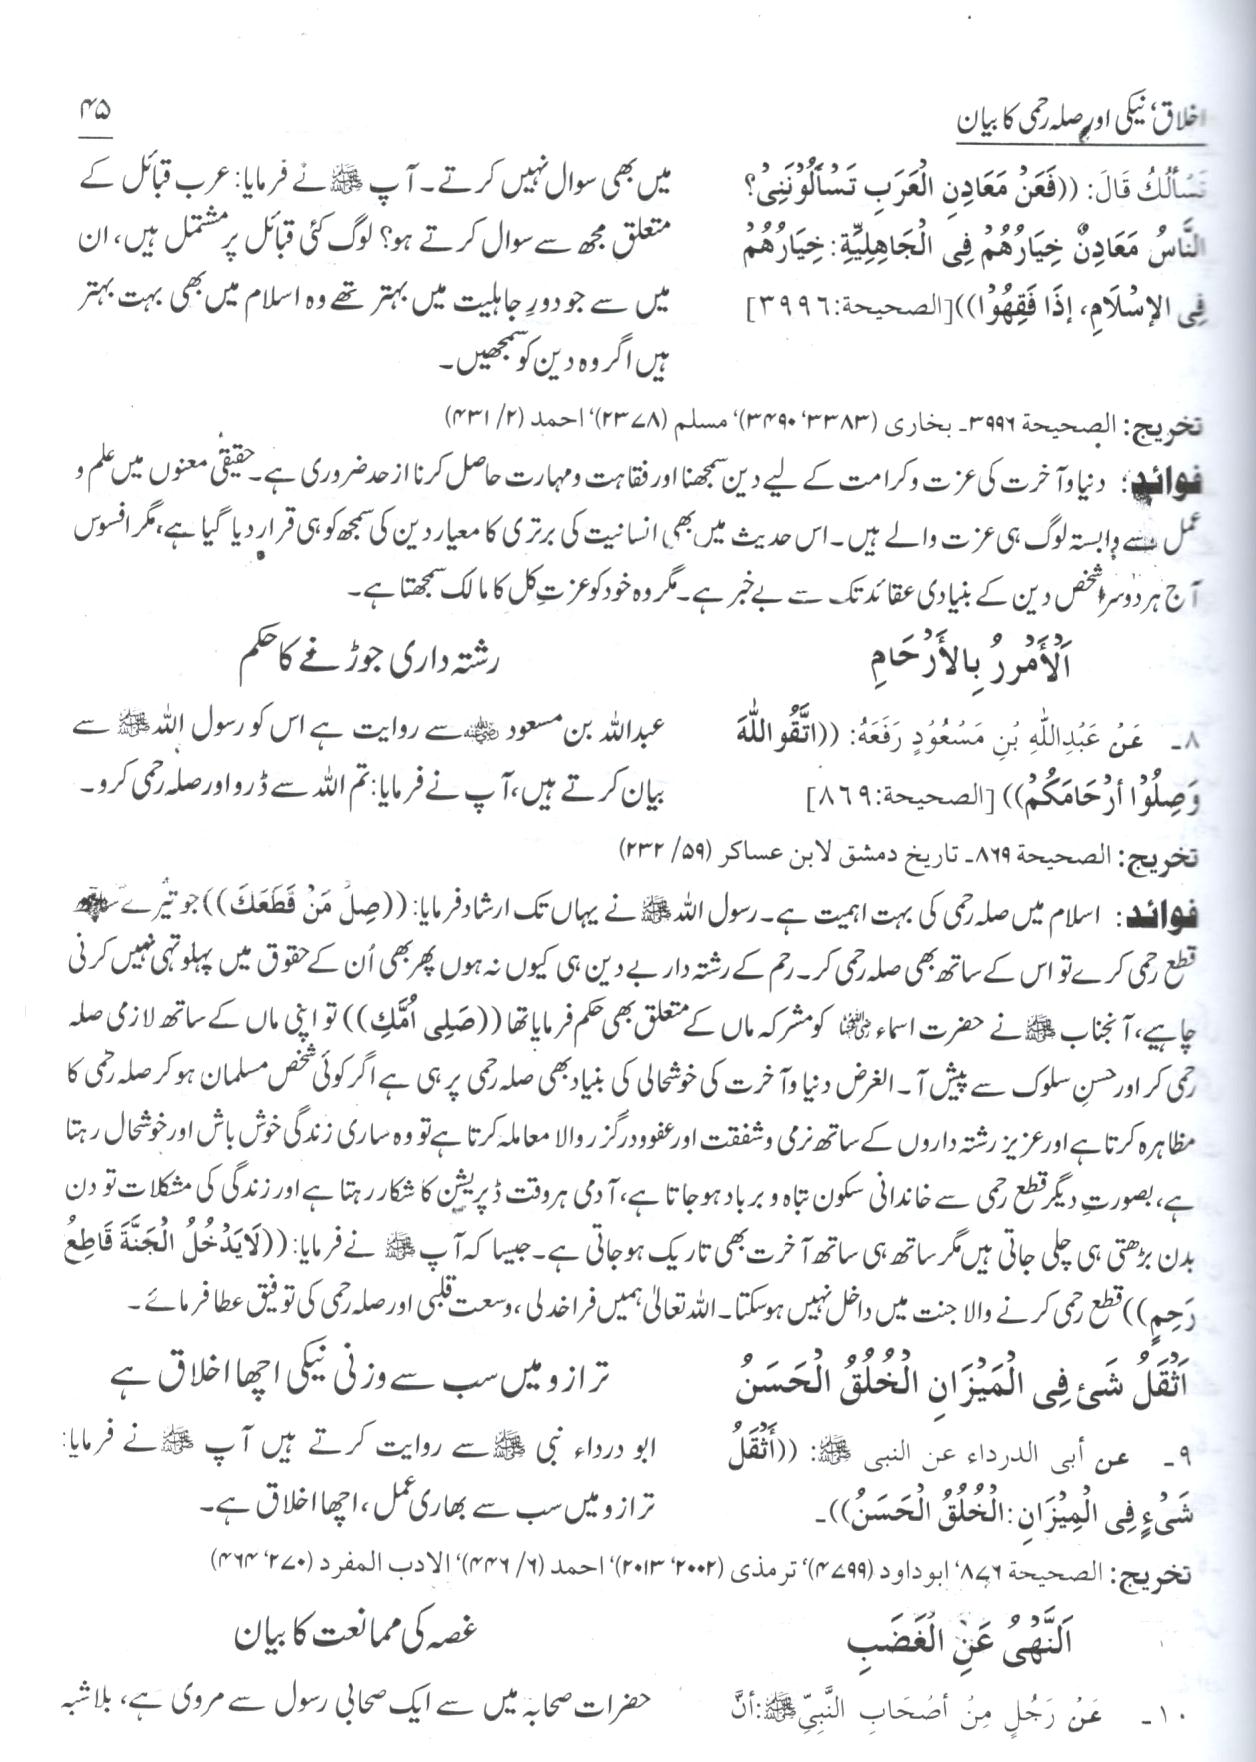 اخلاق، نیکی اور صلہ رحمی کا بیان
۴۵
نَسْأَلُكَ قَالَ: ((فَعَنْ مَعَادِنِ الْعَرَبِ تَسْأَلُوْنَنِیْ؟
النَّاسُ مَعَادِنٌ خِيَارُهُمْ فِی الْجَاهِلِيِّةِ: خِيَارُهُمْ
فِی الإِسْلَامِ، إِذَا فَقِهُوْا))[الصحیحة:٣٩٩٦]
میں بھی سوال نہیں کرتے۔ آپ ﷺ نے فرمایا: عرب قبائل کے
متعلق مجھ سے سوال کرتے ہو؟ لوگ کئی قبائل پر مشتمل ہیں، ان
میں سے جو دورِ جاہلیت میں بہتر تھے وہ اسلام میں بھی بہت بہتر
ہیں اگر وہ دین کو سمجھیں۔
تخریج: الصحیحة ۳۹۹۶۔ بخاری (۳۳۸۳، ۳۴۹۰)، مسلم (۲۳۷۸)، احمد (۲/ ۴۳۱)
فوائد: دنیا و آخرت کی عزت و کرامت کے لیے دین سمجھنا اور فقاہت و مہارت حاصل کرنا از حد ضروری ہے۔ حقیقی معنوں میں علم و
عمل سے وابستہ لوگ ہی عزت والے ہیں۔ اس حدیث میں بھی انسانیت کی برتری کا معیار دین کی سمجھ کو ہی قرار دیا گیا ہے، مگر افسوس
آج ہر دوسرا شخص دین کے بنیادی عقائد تک سے بے خبر ہے۔ مگر وہ خود کو عزتِ کل کا مالک سمجھتا ہے۔
اَلْأَمْرُ بِالأَرْحَامِ
رشتہ داری جوڑنے کا حکم
۸۔ عَنْ عَبْدِاللّٰهِ بْنِ مَسْعُوْدٍ رَفَعَهُ: ((اتَّقُو اللّٰهَ
وَصِلُوْا أَرْحَامَكُمْ)) [الصحیحة:٨٦٩]
عبداللہ بن مسعود رضی اللہ عنہ سے روایت ہے اس کو رسول اللہ ﷺ سے
بیان کرتے ہیں، آپ نے فرمایا: تم اللہ سے ڈرو اور صلہ رحمی کرو۔
تخریج: الصحیحة ۸۶۹۔ تاریخ دمشق لابن عساکر (۵۹/ ۲۳۲)
فوائد: اسلام میں صلہ رحمی کی بہت اہمیت ہے۔ رسول اللہ ﷺ نے یہاں تک ارشاد فرمایا: ((صِلْ مَنْ قَطَعَكَ)) جو تیرے
قطع رحمی کرے تو اس کے ساتھ بھی صلہ رحمی کر۔ رحم کے رشتہ دار بے دین ہی کیوں نہ ہوں پھر بھی اُن کے حقوق میں پہلو تہی نہیں کرنی
چاہیے، آنجناب ﷺ نے حضرت اسماء رضی اللہ عنہا کو مشرکہ ماں کے متعلق بھی حکم فرمایا تھا ((صَلِی اُمَّكِ)) تو اپنی ماں کے ساتھ لازمی صلہ
رحمی کر اور حسنِ سلوک سے پیش آ۔ الغرض دنیا و آخرت کی خوشحالی کی بنیاد بھی صلہ رحمی پر ہی ہے اگر کوئی شخص مسلمان ہو کر صلہ رحمی کا
مظاہرہ کرتا ہے اور عزیز رشتہ داروں کے ساتھ نرمی و شفقت اور عفو و درگزر والا معاملہ کرتا ہے تو وہ ساری زندگی خوش باش اور خوشحال رہتا
ہے، بصورتِ دیگر قطع رحمی سے خاندانی سکون تباہ و برباد ہو جاتا ہے، آدمی ہر وقت ڈپریشن کا شکار رہتا ہے اور زندگی کی مشکلات تو دن
بدن بڑھتی ہی چلی جاتی ہیں مگر ساتھ ہی ساتھ آخرت بھی تاریک ہو جاتی ہے۔ جیسا کہ آپ ﷺ نے فرمایا: ((لَایَدْخُلُ الْجَنَّةَ قَاطِعُ
رَحِمٍ)) قطع رحمی کرنے والا جنت میں داخل نہیں ہو سکتا۔ اللہ تعالیٰ ہمیں فراخدلی، وسعت قلبی اور صلہ رحمی کی توفیق عطا فرمائے۔
اَثْقَلُ شَیْ فِی الْمِیْزَانِ الْخُلُقُ الْحَسَنُ
ترازو میں سب سے وزنی نیکی اچھا اخلاق ہے
۹۔ عن أبی الدرداء عن النبی ﷺ: ((أَثْقَلُ
شَیْءٍ فِی الْمِیْزَانِ: الْخُلُقُ الْحَسَنُ))۔
ابو درداء نبی ﷺ سے روایت کرتے ہیں آپ ﷺ نے فرمایا:
ترازو میں سب سے بھاری عمل، اچھا اخلاق ہے۔
تخریج: الصحیحة ۸۷۶، ابوداود (۴۷۹۹)، ترمذی (۲۰۰۲، ۲۰۱۳)، احمد (۶/ ۴۴۶)، الادب المفرد (۲۷۰، ۴۶۴)
اَلنَّهْیُ عَنِ الْغَضَبِ
غصہ کی ممانعت کا بیان
۱۰۔ عَنْ رَجُلٍ مِنْ أَصْحَابِ النَّبِیِّ ﷺ: أَنَّ
حضرات صحابہ میں سے ایک صحابی رسول سے مروی ہے، بلاشبہ